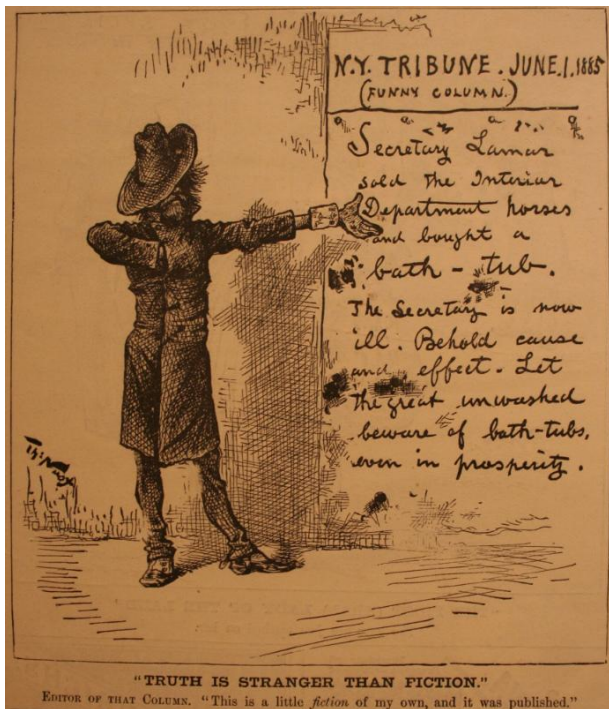 N.Y. TRIBUNE. JUNE.1.1885
(FUNNY COLUMN.)
Secretary Lamar
sold the Interior
Department horses
and bought a
bath-tub.
The Secretary is now
ill. Behold cause
and effect. Let
the great unwashed
beware of bath-tubs,
even in prosperity.
Th. Nast
"TRUTH IS STRANGER THAN FICTION."
EDITOR OF THAT COLUMN. "This is a little fiction of my own, and it was published."